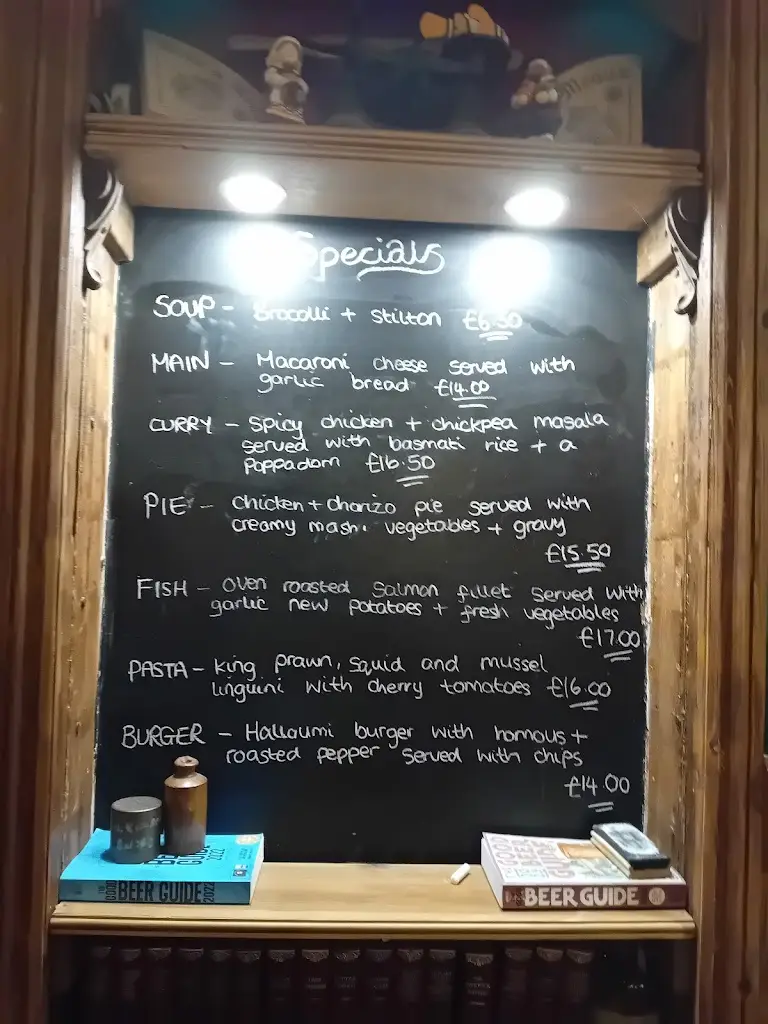 Specials
SOUP - Brocolli + stilton £6.50
MAIN - Macaroni cheese served with
garlic bread £14.00
CURRY - Spicy chicken + chickpea masala
served with basmati rice + a
Poppadom £16.50
PIE - Chicken + chorizo pie served with
creamy mash, vegetables + gravy
£15.50
FISH - Oven roasted Salmon fillet served with
garlic new potatoes + fresh vegetables
£17.00
PASTA - King prawn, squid and mussel
linguini with cherry tomatoes £16.00
BURGER - Halloumi burger with homous +
roasted pepper served with chips
£14.00
GOOD BEER GUIDE 2022
BEER GUIDE